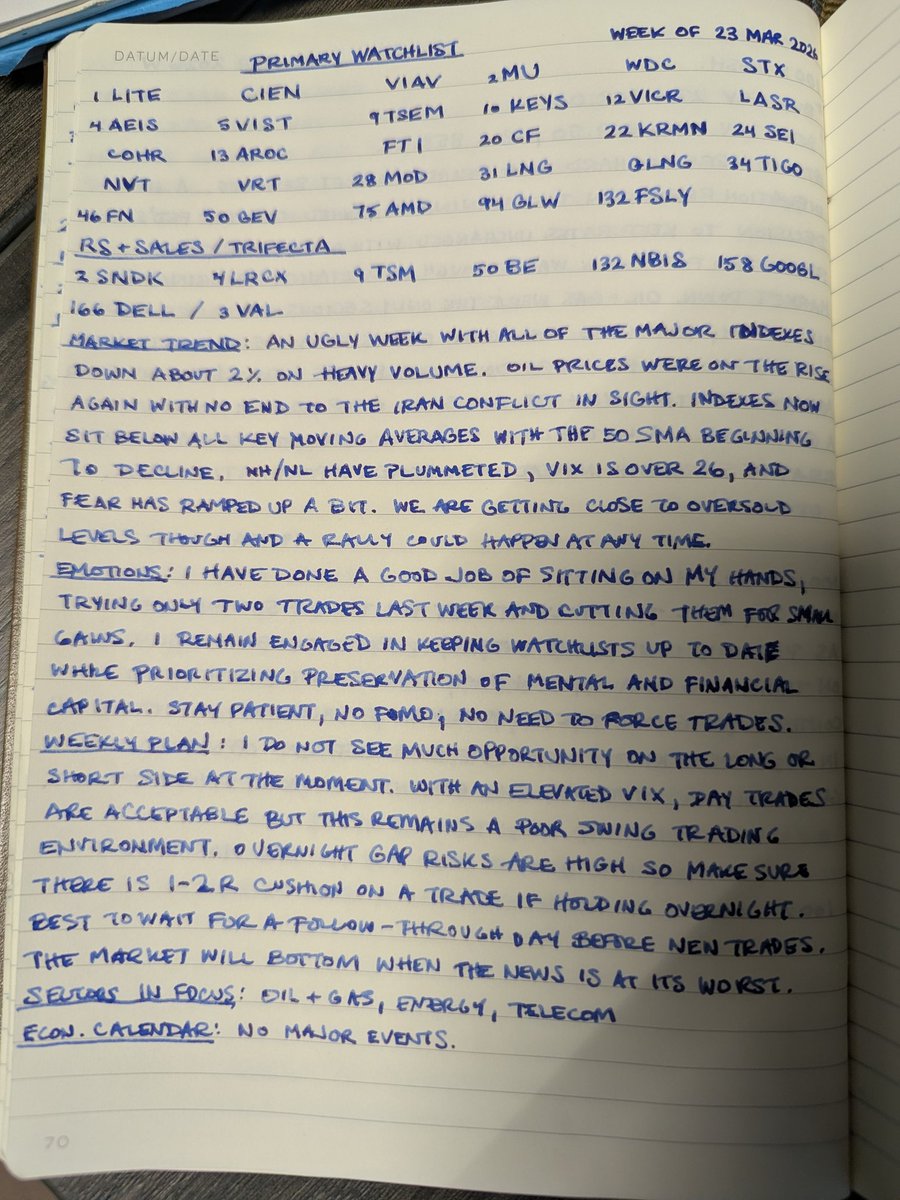 DATUM/DATE PRIMARY WATCHLIST WEEK OF 23 MAR 2026
1 LITE CIEN VIAV 2 MU WDC STX
4 AEIS 5 VIST 9 TSEM 10 KEYS 12 VICR LASR
COHR 13 AROC FTI 20 CF 22 KRMN 24 SEI
NVT VRT 28 MOD 31 LNG GLNG 34 TIGO
46 FN 50 GEV 75 AMD 94 GLW 132 FSLY
RS + SALES / TRIFECTA
2 SNDK 4 LRCX 9 TSM 50 BE 132 NBIS 158 GOOGL
166 DELL / 3 VAL
MARKET TREND: AN UGLY WEEK WITH ALL OF THE MAJOR INDEXES
DOWN ABOUT 2% ON HEAVY VOLUME. OIL PRICES WERE ON THE RISE
AGAIN WITH NO END TO THE IRAN CONFLICT IN SIGHT. INDEXES NOW
SIT BELOW ALL KEY MOVING AVERAGES WITH THE 50 SMA BEGINNING
TO DECLINE. NH/NL HAVE PLUMMETED, VIX IS OVER 26, AND
FEAR HAS RAMPED UP A BIT. WE ARE GETTING CLOSE TO OVERSOLD
LEVELS THOUGH AND A RALLY COULD HAPPEN AT ANY TIME.
EMOTIONS: I HAVE DONE A GOOD JOB OF SITTING ON MY HANDS,
TRYING ONLY TWO TRADES LAST WEEK AND CUTTING THEM FOR SMALL
GAINS. I REMAIN ENGAGED IN KEEPING WATCHLISTS UP TO DATE
WHILE PRIORITIZING PRESERVATION OF MENTAL AND FINANCIAL
CAPITAL. STAY PATIENT, NO FOMO, NO NEED TO FORCE TRADES.
WEEKLY PLAN: I DO NOT SEE MUCH OPPORTUNITY ON THE LONG OR
SHORT SIDE AT THE MOMENT. WITH AN ELEVATED VIX, DAY TRADES
ARE ACCEPTABLE BUT THIS REMAINS A POOR SWING TRADING
ENVIRONMENT. OVERNIGHT GAP RISKS ARE HIGH SO MAKE SURE
THERE IS 1-2 R CUSHION ON A TRADE IF HOLDING OVERNIGHT.
BEST TO WAIT FOR A FOLLOW-THROUGH DAY BEFORE NEW TRADES.
THE MARKET WILL BOTTOM WHEN THE NEWS IS AT ITS WORST.
SECTORS IN FOCUS: OIL + GAS, ENERGY, TELECOM
ECON. CALENDAR: NO MAJOR EVENTS.
70